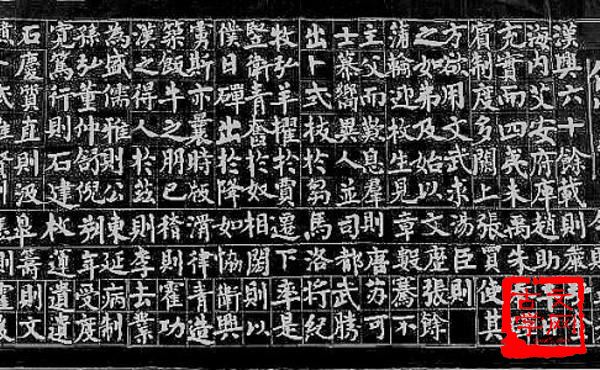 漢興六十餘載
海內乂安府庫
充實而四夷未
賓制度多闕上
方欲用文武求
之如弗及始以
蒲輪迎枚生見
主父而歎息羣
士慕嚮異人並
出卜式拔於芻
牧弘羊擢於賈
豎衛青奮於奴
僕日磾出於降
虜斯亦曩時版
築飯牛之朋已
漢之得人於茲
為盛儒雅則公
孫弘董仲舒倪
寬篤行則石建
石慶質直則汲
則趙禹張湯文章則司馬遷相如滑稽則東方朔枚皋
則嚴助朱買臣歷數則唐都洛下閎協律則李延年運籌則
使則張騫蘇武率則衛青霍去病受遺則霍
其餘不可勝紀是以興造功業制度遺文